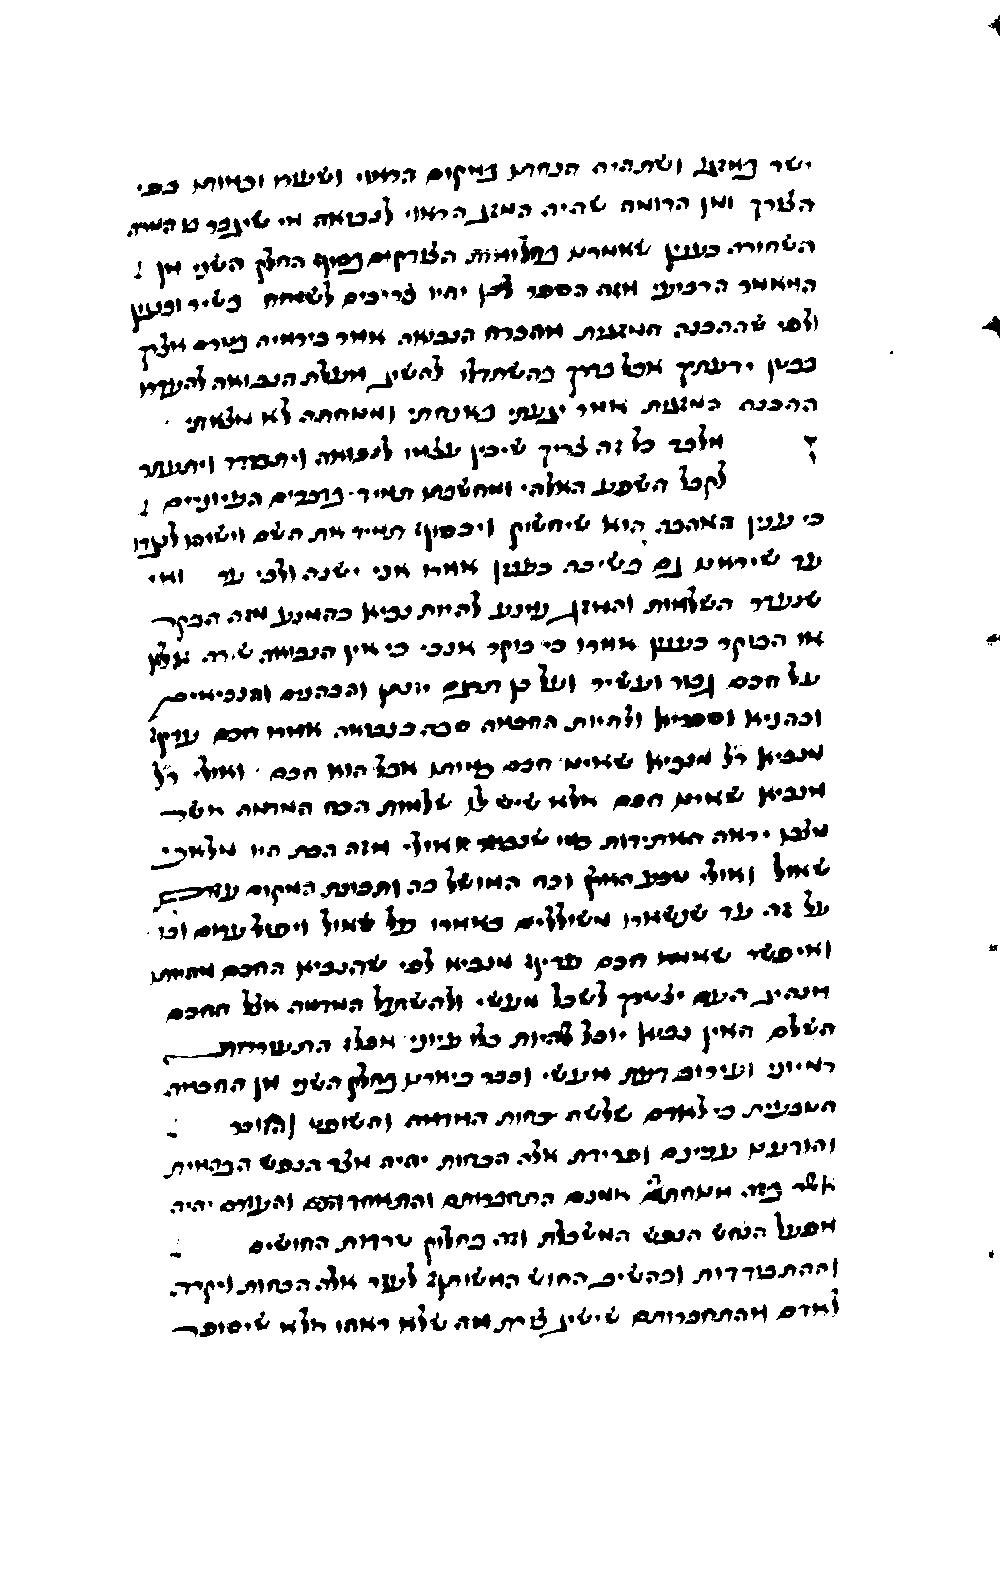 ישר במזגו ושתהיה הנחתו במקום הראוי ושעורו וכמותו כפי
הצורך ומן הדומה שהיה המזג הראוי לנבואה מי שיגבר בו המרה
השחורה כענין שאמרנו בחלומות הצודקים בסוף החלק השני מן
המאמר הרביעי מזה הספר ולכן יהיו צריכים לשמחה בשיר וכענין
ולפי שההכנה המזגית מוכרחת הנבואה אמר בירמיה בטרם אצרך
בבטן ידעתיך אבל ברוך בהשתדלו להשיג מעלת הנבואה להעדר
ההכנה המזגית אמר יגעתי באנחתי ומנוחה לא מצאתי
מלבד כל זה צריך שיכין עצמו לנבואה ויתבודד ויתעתד
לקבל השפע האלהי ומחשבתו תמיד בדברים העיוניים
כי ענין האהבה הוא שיחשוק ויכסוף תמיד את השם וישימהו לנגדו
עד שיראינו גם בשינה כענין אמרו אני ישנה ולבי ער ומי
שנעדר השלמות והמזג ימנע להיות נביא כהמנע מזה הבקר
או הבוקר כענין אמרו כי בוקר אנכי כי אין הנבואה שורה אלא
על חכם גבור ועשיר ועל כן תרגם יונתן והכהנים והנביאים
וכהניא וספריא ולהיות החכמה סבה בנבואה אמרו חכם עדיף
מנביא ר"ל מנביא שאינו חכם באותו אבל הוא חכם ואולי ר"ל
מנביא שאינו חכם אלא שיש לו שלמות הכח המדמה אשר
מצדו יראה העתידות כמי שנבא אולי מזה הכת היו מלאכי
שאול ואולי שפע המלך וכח המושל בה ותכונת המקום עזרם
על זה עד שנשארו משוללים כאמרו על שאול ויפול ערום וכו'
ואיפשר שאמרו חכם עדיף מנביא לפי שהנביא החכם מהיותו
מנהיג העם יצטרך לשכל מעשי ולהשתדל המדמה אבל החכם
השלם האין נביא יוכל להיות כלו עיוני אבלו התעוררות
ראיוני ועירום דעת מעשי וכבר ביארנו בחלק השני מן החכמה
הטבעית כי לאדם שלשה כחות המדמה והשופט והזוכר
והודענו ענינם ופרידת אלה הכחות יהיה מצד הנפש הבהמית
אשר בזה אמנם התחברותם והתאחדותם והעזרם יהיה
מפעל הנפש המשכלת וזה בחלוק טרדות החושים
וההתבודדות ובהשיב החוש המשותף לעזר אלה הכחות ויקרה
לאדם מהתחברותם שישיג צורת מה שלא ראהו אלא שיסופר